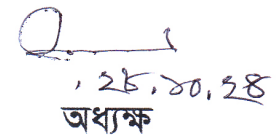 ২৮.১০.২৪
অধ্যক্ষ